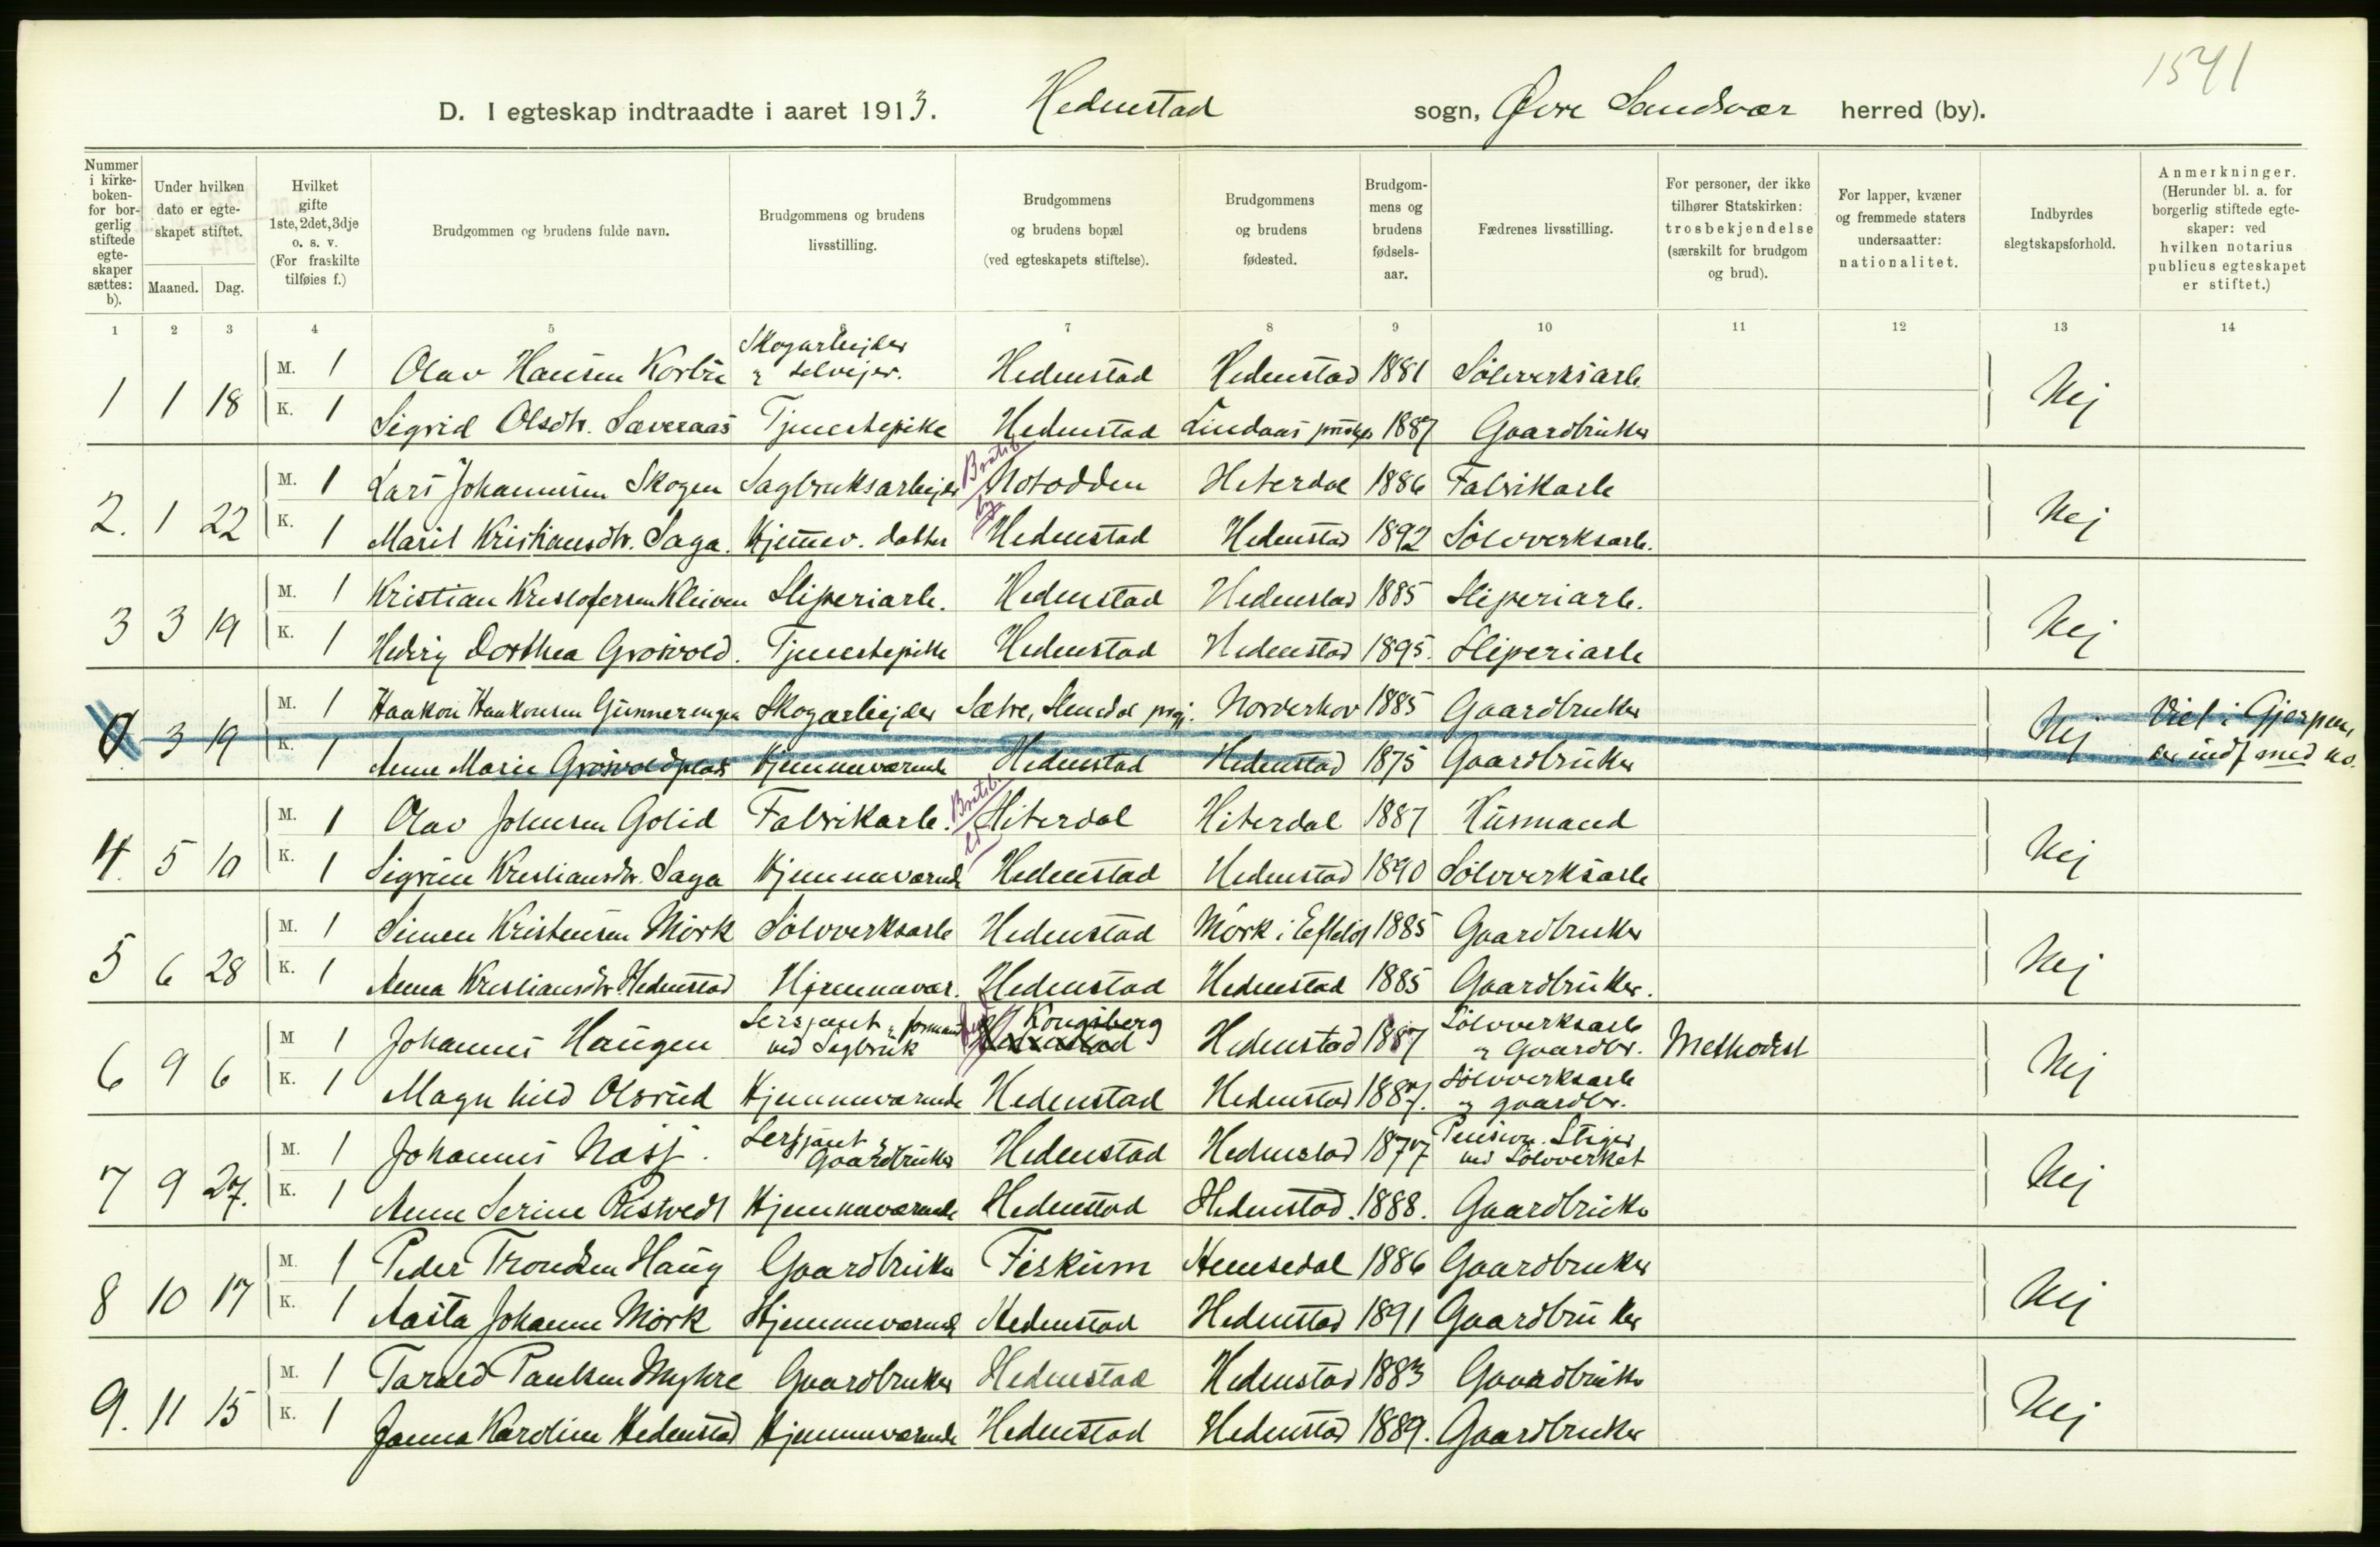 1541
D. I egteskap indtraadte i aaret 1913. Hedenstad sogn, Øvre Sandsvær herred (by).
Nummer i kirke-boken- for bor-gerlig stiftede egte-skaper sættes: b).
Under hvilken dato er egte-skapet stiftet.
Maaned. Dag.
Hvilket gifte 1ste, 2det, 3dje o. s. v. (For fraskilte tilføies f.)
Brudgommen og brudens fulde navn.
Brudgommens og brudens livsstilling.
Brudgommens og brudens bopæl (ved egteskapets stiftelse).
Brudgommens og brudens fødested.
Brudgom-mens og brudens fødsels-aar.
Fædrenes livsstilling.
For personer, der ikke tilhører Statskirken: trosbekjendelse (særskilt for brudgom og brud).
For lapper, kvæner og fremmede staters undersaatter: nationalitet.
Indbyrdes slegtskapsforhold.
Anmerkninger. (Herunder bl. a. for borgerlig stiftede egte-skaper: ved hvilken notarius publicus egteskapet er stiftet.)
1 2 3 4 5 6 7 8 9 10 11 12 13 14
1 1 18 M. 1 Olav Hansen Korbu Skogarbejder & selvejer. Hedenstad Hedenstad 1881 Sölvverksarb. Nej
K. 1 Sigrid Olsdtr. Sæveraas Tjenestepike Hedenstad Lindaas 1887 Gaardbruker
2. 1 22 M. 1 Lars Johannesen Skogen Sagbruksarbejder Bratsb. by Notodden Hiterdal 1886 Fabrikarb Nej
K. 1 Marit Kristiansdtr. Saga. Hjemmev. datter Hedenstad Hedenstad 1892 Sölvverksarb.
3 3 19 M. 1 Kristian Kristofersen Kleiven Sliperiarb. Hedenstad Hedenstad 1885 Sliperiarb. Nej
K. 1 Hedvig Dorthea Grosvold. Tjenestepike Hedenstad Hedenstad 1895. Sliperiarb
0 3 19 M. 1 Haakon Haakonsen Gunnerengen Skogarbejder Sætre, Slemdal prgj. Norderhov 1885 Gaardbruker Nej Viet i Gjerpen,
K. 1 Anne Marie Grosvoldplads Hjemmeværende Hedenstad Hedenstad 1875 Gaardbruker er indf med no.
4. 5 10 M. 1 Olav Johnsen Golid Fabrikarb. Bratsb. Hiterdal Hiterdal 1887 Husmand Nej
K. 1 Sigrun Kristiansdtr. Saga Hjemmeværende Hedenstad Hedenstad 1890 Sölvverksarb
5 6 28 M. 1 Simen Kristensen Mörk Sölvverksarb Hedenstad Mörk i Eftelöt 1885 Gaardbruker Nej
K. 1 Anna Kristiansdtr Hedenstad Hjemmevær. Hedenstad Hedenstad 1885 Gaardbruker.
6 9 6 M 1 Johannes Haugen Sersjant & formand ved Sagbruk Kongsberg Hedenstad Hedenstad 1887 Sölvverksarb & Gaardbr. Methodist Nej
K. 1 Magnhild Olsrud Hjemmeværende Hedenstad Hedenstad 1887. Sölvverksarb & gaardbr.
7 9 27. M. 1 Johannes Næss. Sersjant & Gaardbruker Hedenstad Hedenstad 1877 Pension. Stiger ved Sölvverket Nej
K. 1 Anne Serine Ristvedt Hjemmeværende Hedenstad Hedenstad. 1888. Gaardbruker
8 10 17 M. 1 Peder Trondsen Haug Gaardbruker Fiskum Hemsedal 1886 Gaardbruker Nej
K. 1 Aasta Johanne Mörk Hjemmeværende Hedenstad Hedenstad 1891 Gaardbruker
9. 11 15 M. 1 Tarald Paulsen Myhre Gaardbruker Hedenstad Hedenstad 1883 Gaardbruker Nej
K. 1 Janna Karoline Hedenstad Hjemmeværende Hedenstad Hedenstad 1889. Gaardbruker